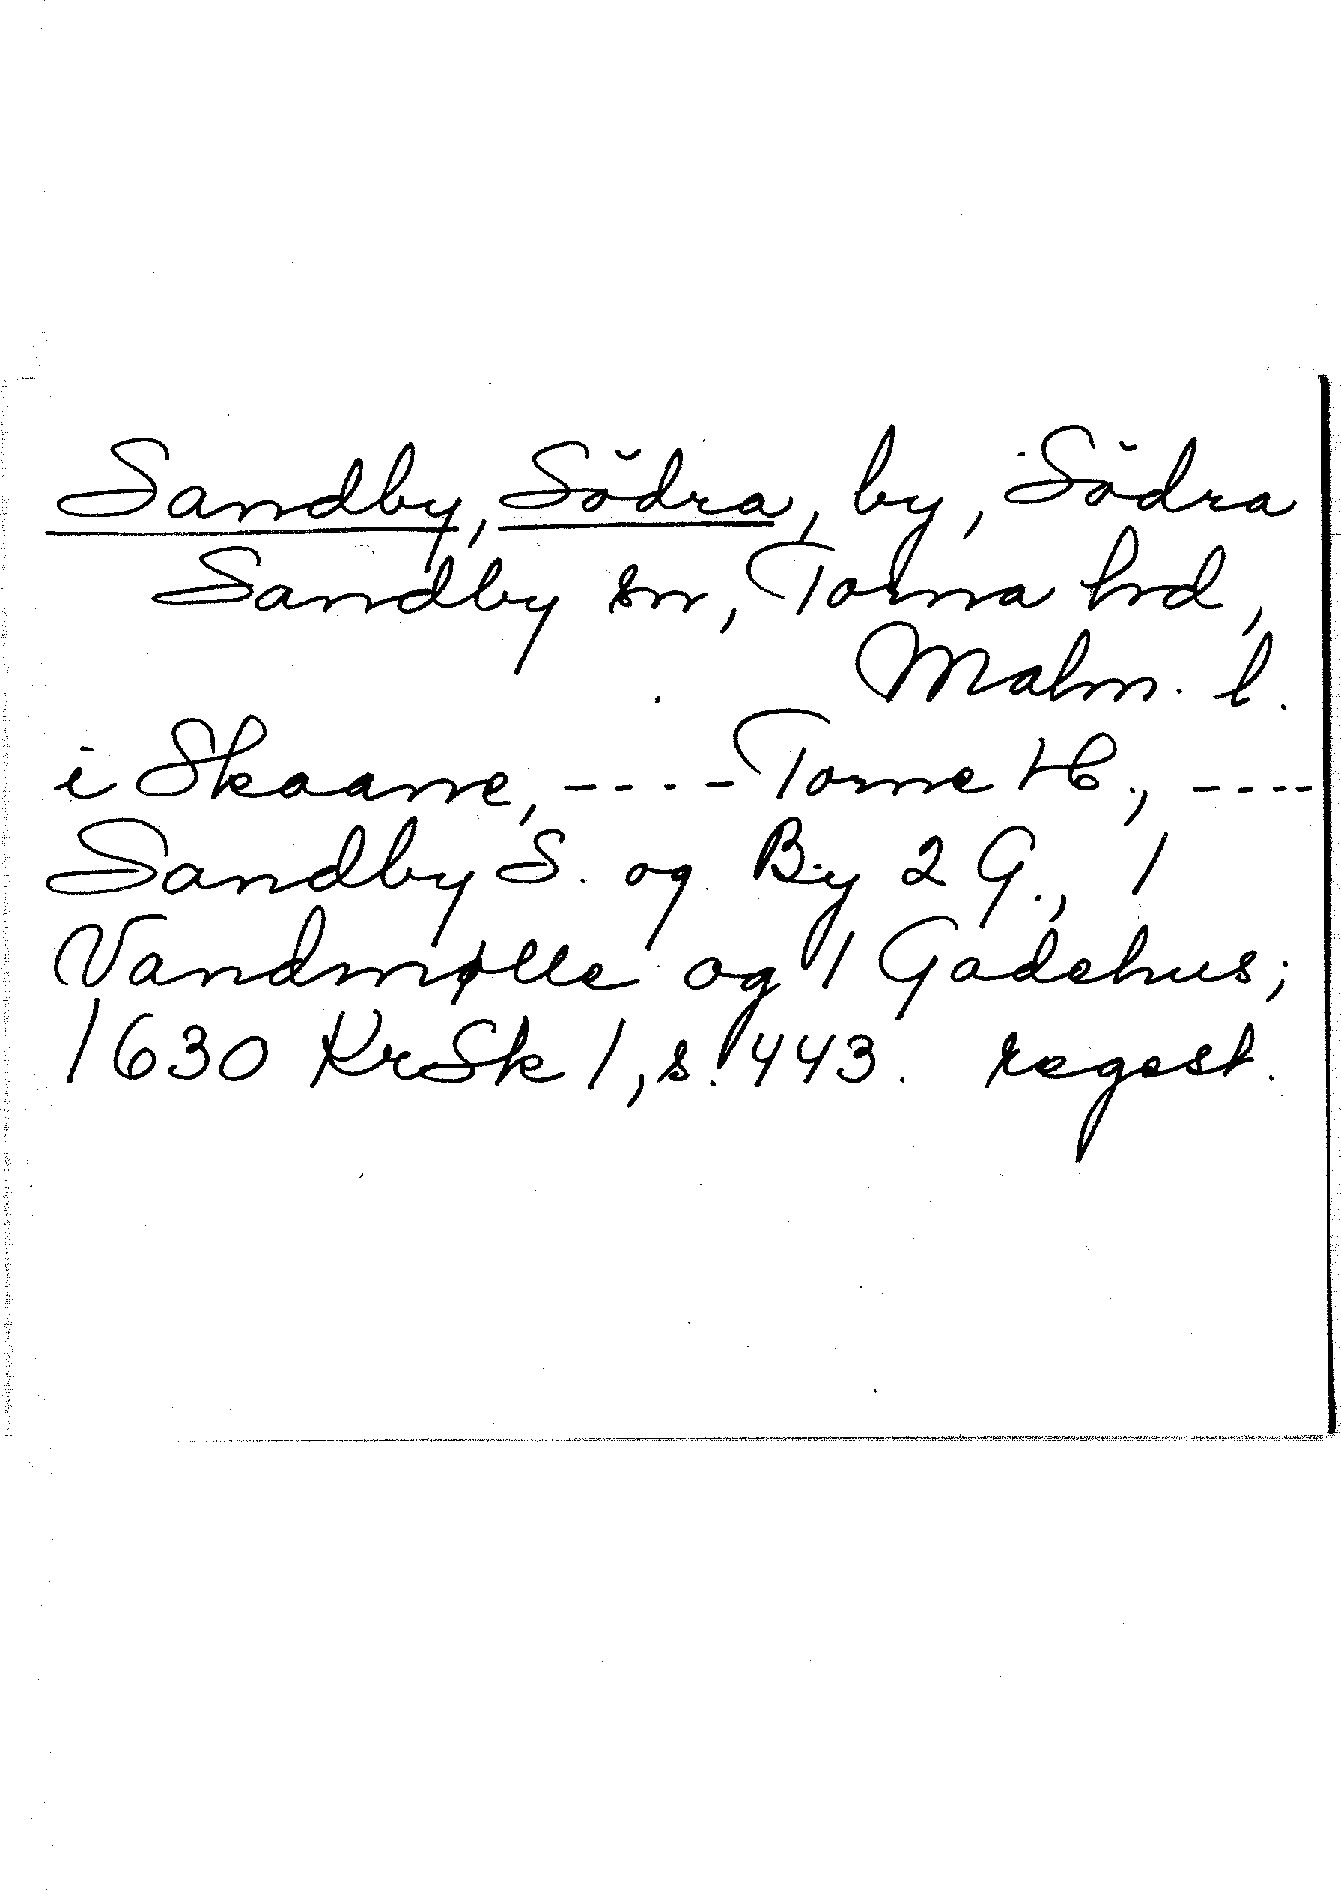 Sandby, Södra, by, Södra
Sandby sn, Torna hrd,
Malm. l.
i Skaane, ---- Torne H., ----
Sandby S. og By 2 G., 1
Vandmølle og 1 Gadehus;
1630 KrSk 1, s. 443. regest.